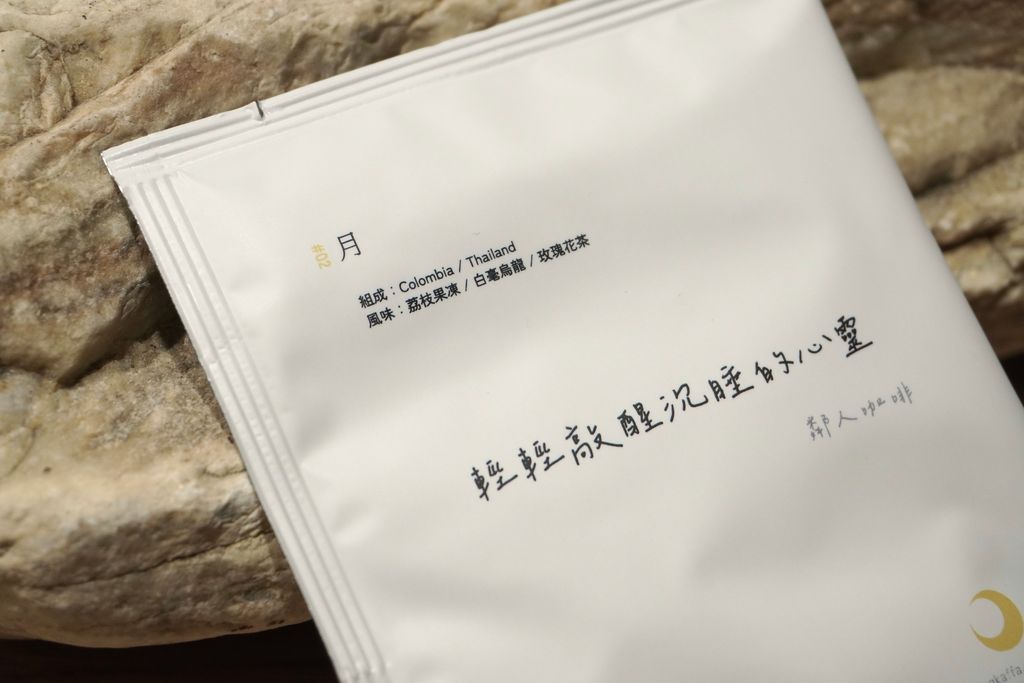 #02
月
組成：Colombia / Thailand
風味：荔枝果凍 / 白毫烏龍 / 玫瑰花茶
輕輕敲醒沉睡的心靈
鄰人咖啡